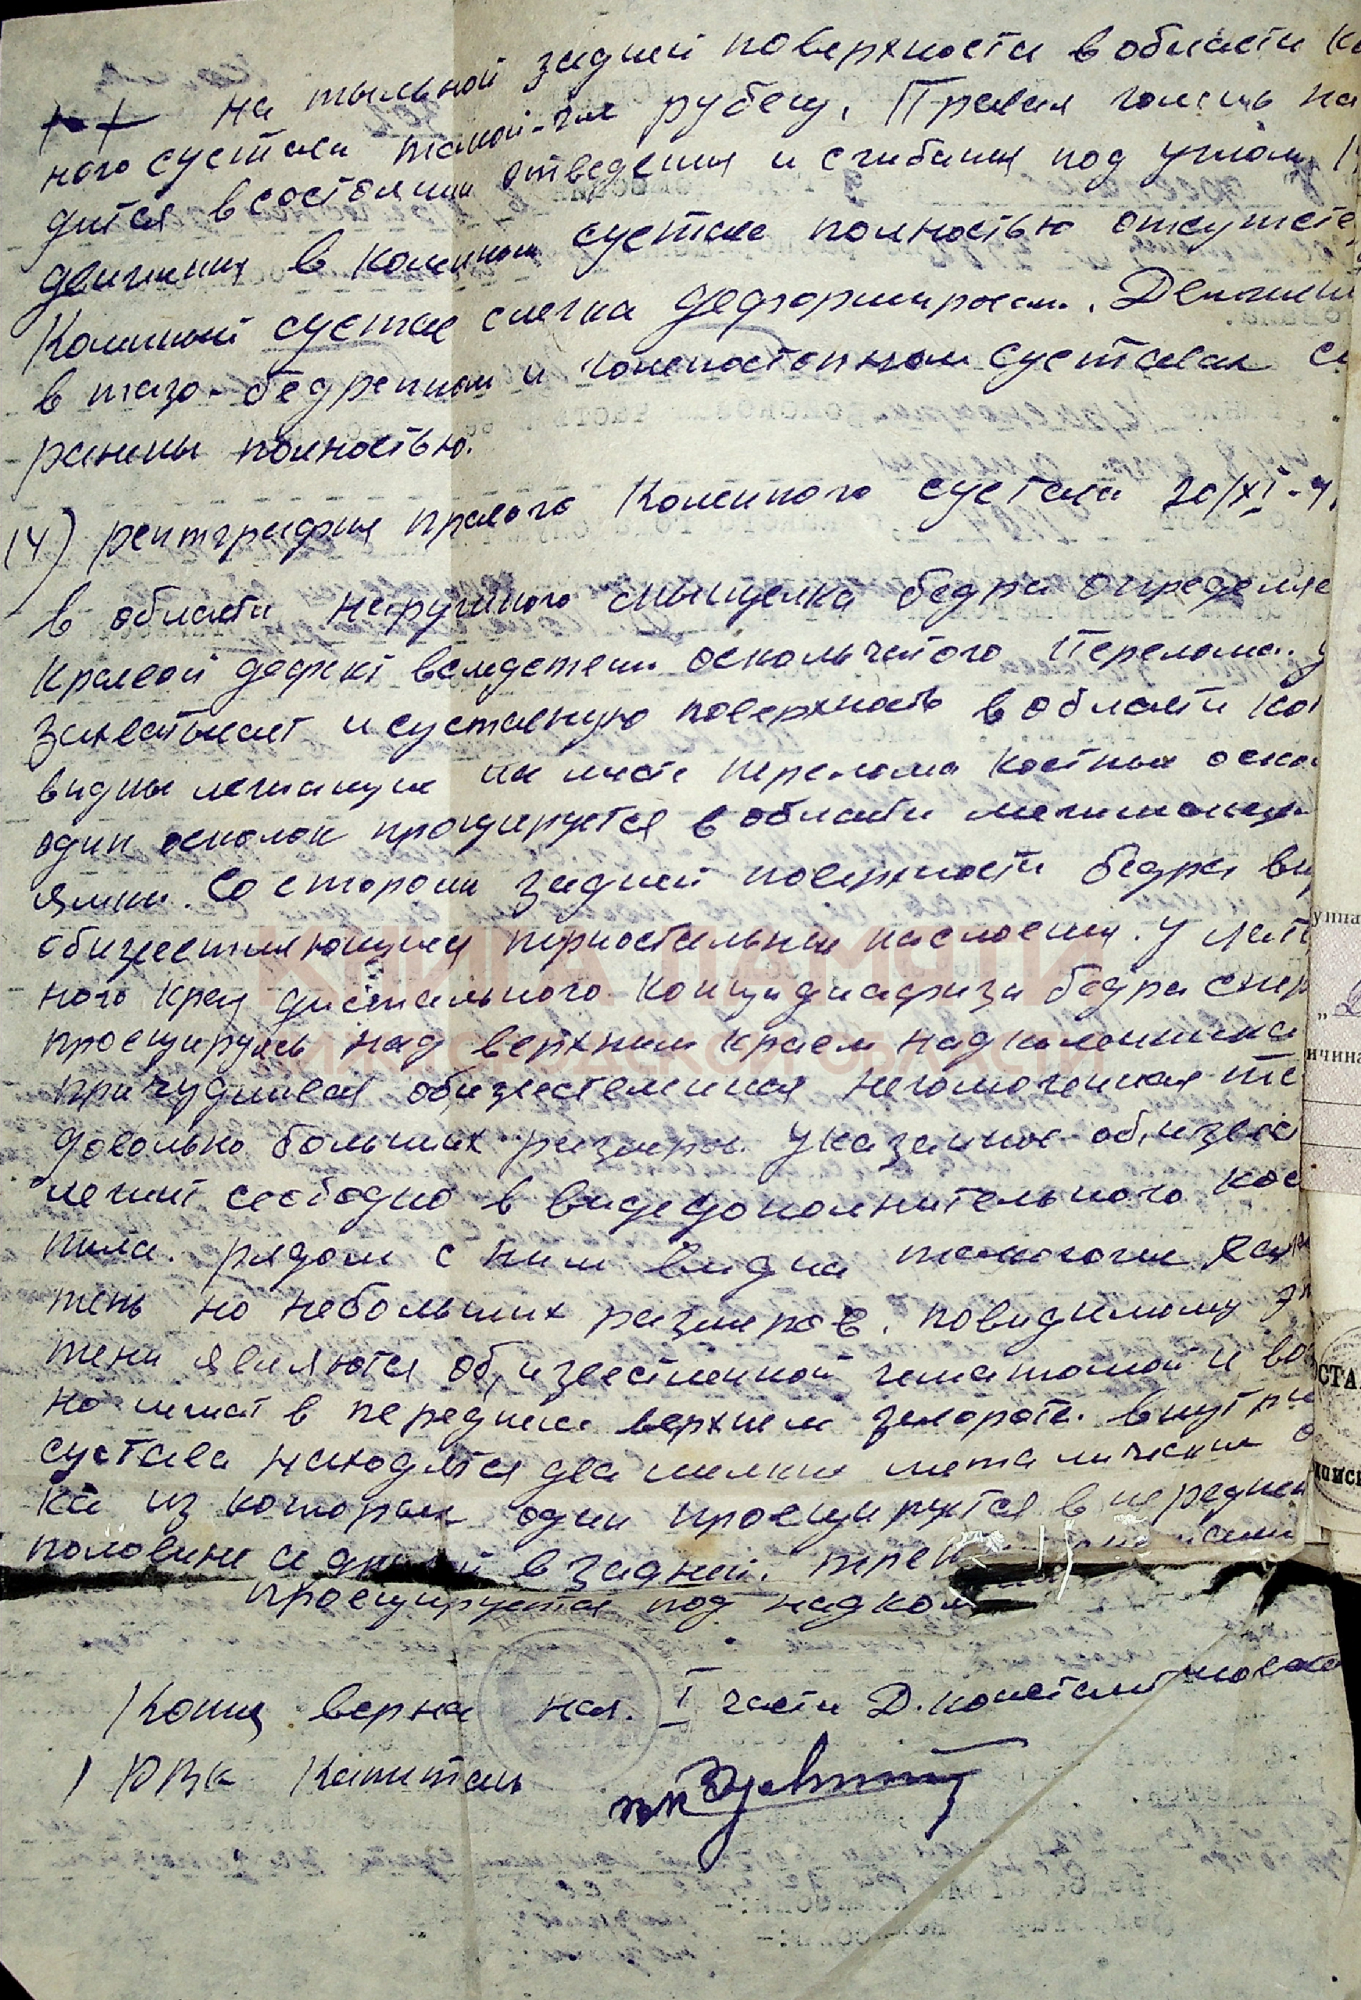 на тыльной задней поверхности в области ко
ного сустава такой-же рубец. Правая голень на
дится в состоянии отведения и сгибания под углом 1
движения в коленном суставе полностью отсутств
Коленный сустав слегка деформирован. Движения
в тазо-бедренном и голеностопном суставах со
ранены полностью.
14) рентграфия правого коленного сустава 20/XI-4
в области наружного мыщелка бедра определяе
краевой дефект вследствии оскольчатого перелома.
Захватывает и суставную поверхность в области ко
видны лежащие на месте перелома костные оско
один осколок процируется в области межмыщелк
ямки. Со стороны задней поверхности бедра ви
обизвествляющиеся периостальные наслоения. У лате
ного края дистального конца диафиза бедра
проецируясь над верхним краем надколенника
причудливая обызвествленная негомогенная те
довольно больших размеров. Указанное об,извес
лежит свободно в виде дополнительного кос
тела. рядом с ним видна такого же харак
тень но небольших размеров. повидимому э
тени являются об,извествленной гематомой и во
но лежат в переднем верхнем завороте. внутри
сустава находятся два мелких металических о
ка из которых один проецируется в передней
половине а другой в задней.
проецируется под надкол
Копия верна нач. I части Д. Константиновского
РВК Капитан
КНИГА ПАМЯТИ
НИЖЕГОРОДСКОЙ ОБЛАСТИ